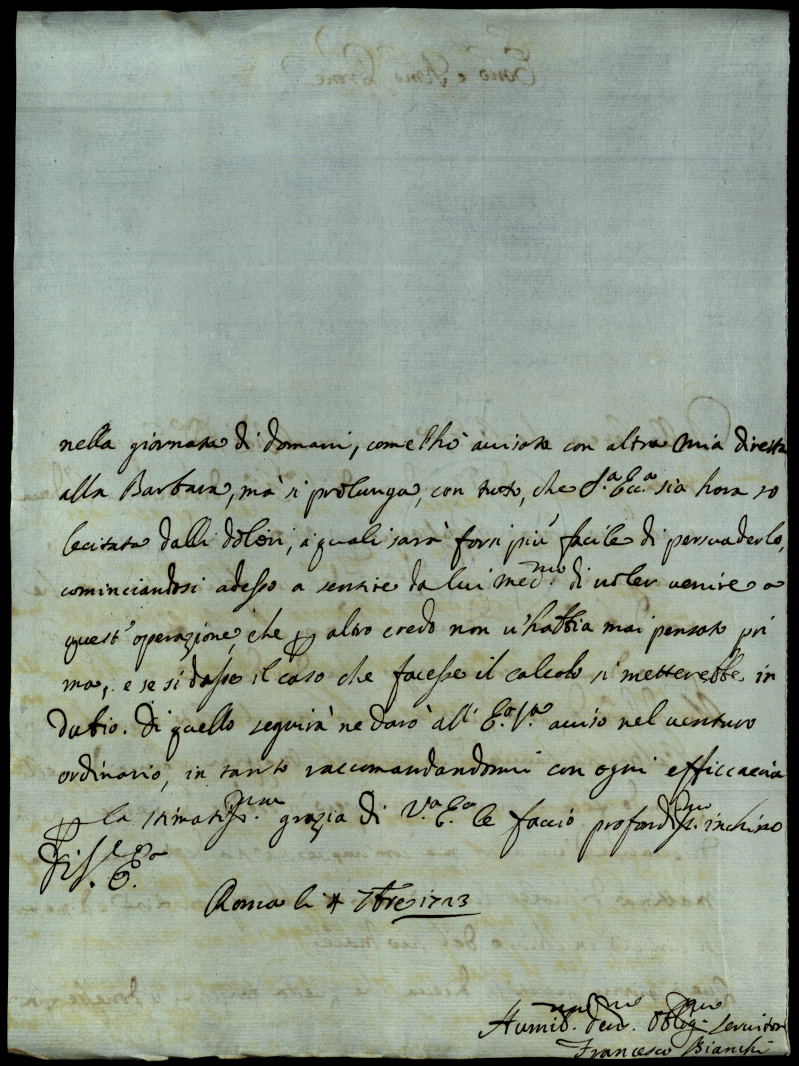 nella giornata di domani, come l'hò auisato con altra mia diretta
alla Barbara, mà si prolunga, con tutto, che S.a Ecc.a sia hora so
lecitata dalli dolori, a quali sarà forsi più facile di persuaderlo,
cominciandosi adesso a sentire da lui med.mo di uoler uenire a
quest'operazione, che altro credo non u'habbia mai pensato pri
ma, e se si dasse il caso che facesse il calcolo si metterebbe in
dubio. Di quello seguirà ne darò all' E.a V.a auiso nel uenturo
ordinario, in tanto raccomandandomi con ogni efficcacia
la stimatiss.ma grazia di V.a E.a le faccio profondiss.mo inchino
Di V. E.a
Roma li 4 7bre 1723
Humil.mo deu.mo Oblig.mo Seruitore
Francesco Bianchi